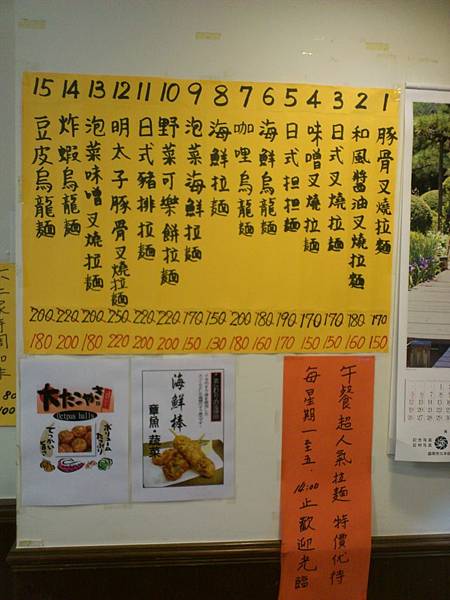 1 豚骨叉燒拉麵 170 150
2 和風醬油叉燒拉麵 180 160
3 日式叉燒拉麵 170 150
4 味噌叉燒拉麵 170 150
5 日式担担麵 190 170
6 海鮮烏龍麵 180 160
7 咖哩烏龍麵 200 180
8 海鮮拉麵 150 130
9 泡菜海鮮拉麵 170 150
10 野菜可樂餅拉麵 220 200
11 日式豬排拉麵 220 200
12 明太子豚骨叉燒拉麵 250 220
13 泡菜味噌叉燒拉麵 200 180
14 炸蝦烏龍麵 220 200
15 豆皮烏龍麵 200 180
午餐超人氣拉麵 特價优待
每星期一至五. 14:00止歡迎光臨
海鮮棒
章魚·蔬菜
大たこやき
Octpus balls
ボリューム
たっぷり
でっかい